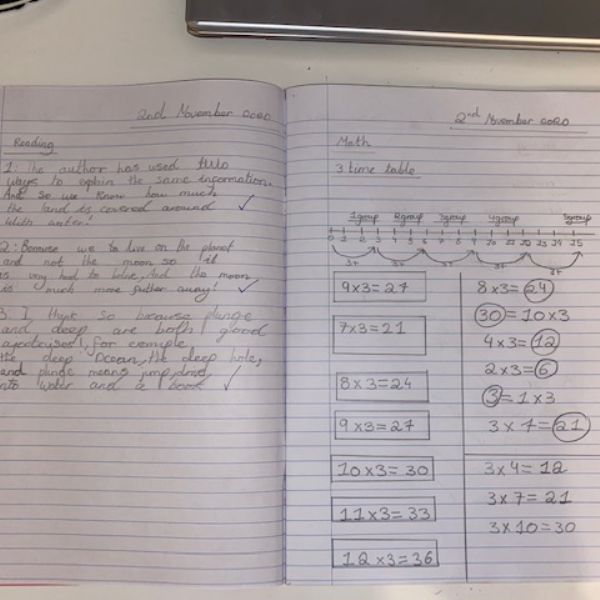 2nd November 2020
Reading
1: The author has used two
ways to explain the same information.
And so we know how much
the land is covered around
with water!
2: Because we to live on the planet
and not the moon so it
is very had to belive, And the moon
is much more further away!
3. I think so because plunge
and deep are both good
for exemple
the deep Ocean, the deep hole,
and plunge means jump,
into water and
2nd November 2020
Math
3 time table
1group 2group 3group 4group 5group
0 1 2 3 4 5 6 7 8 9 10 11 12 13 14 15
3+ 3+ 3+ 3+ 3+
9x3=27
7x3=21
8x3=24
9x3=27
10x3=30
11x3=33
12x3=36
8x3=24
30=10x3
4x3=12
2x3=6
3=1x3
3x7=21
3x4=12
3x7=21
3x10=30